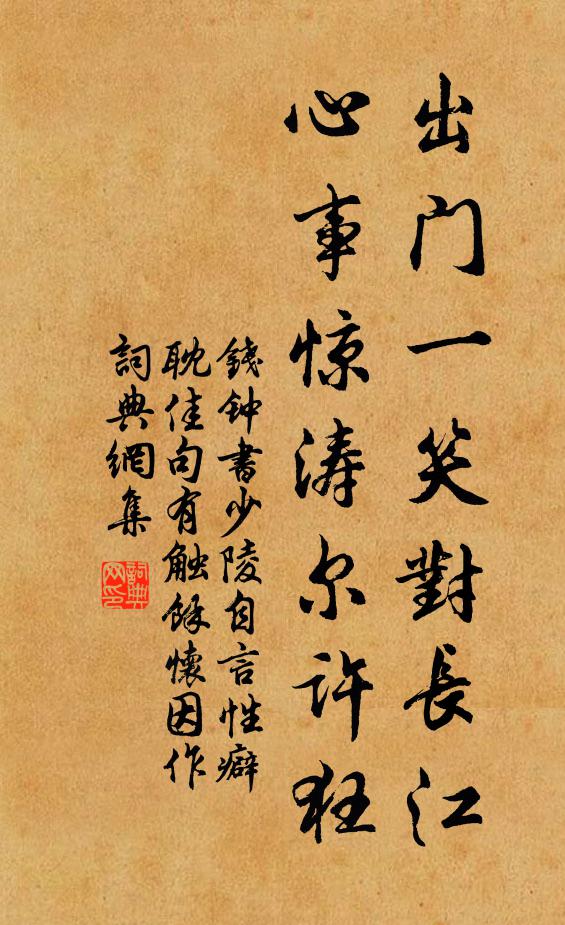 出门一笑對長江
心事惊涛尔許狂
錢钟書少陵自言性癖
耽佳句有触餘懷因作
詞典網集
詞典
网印